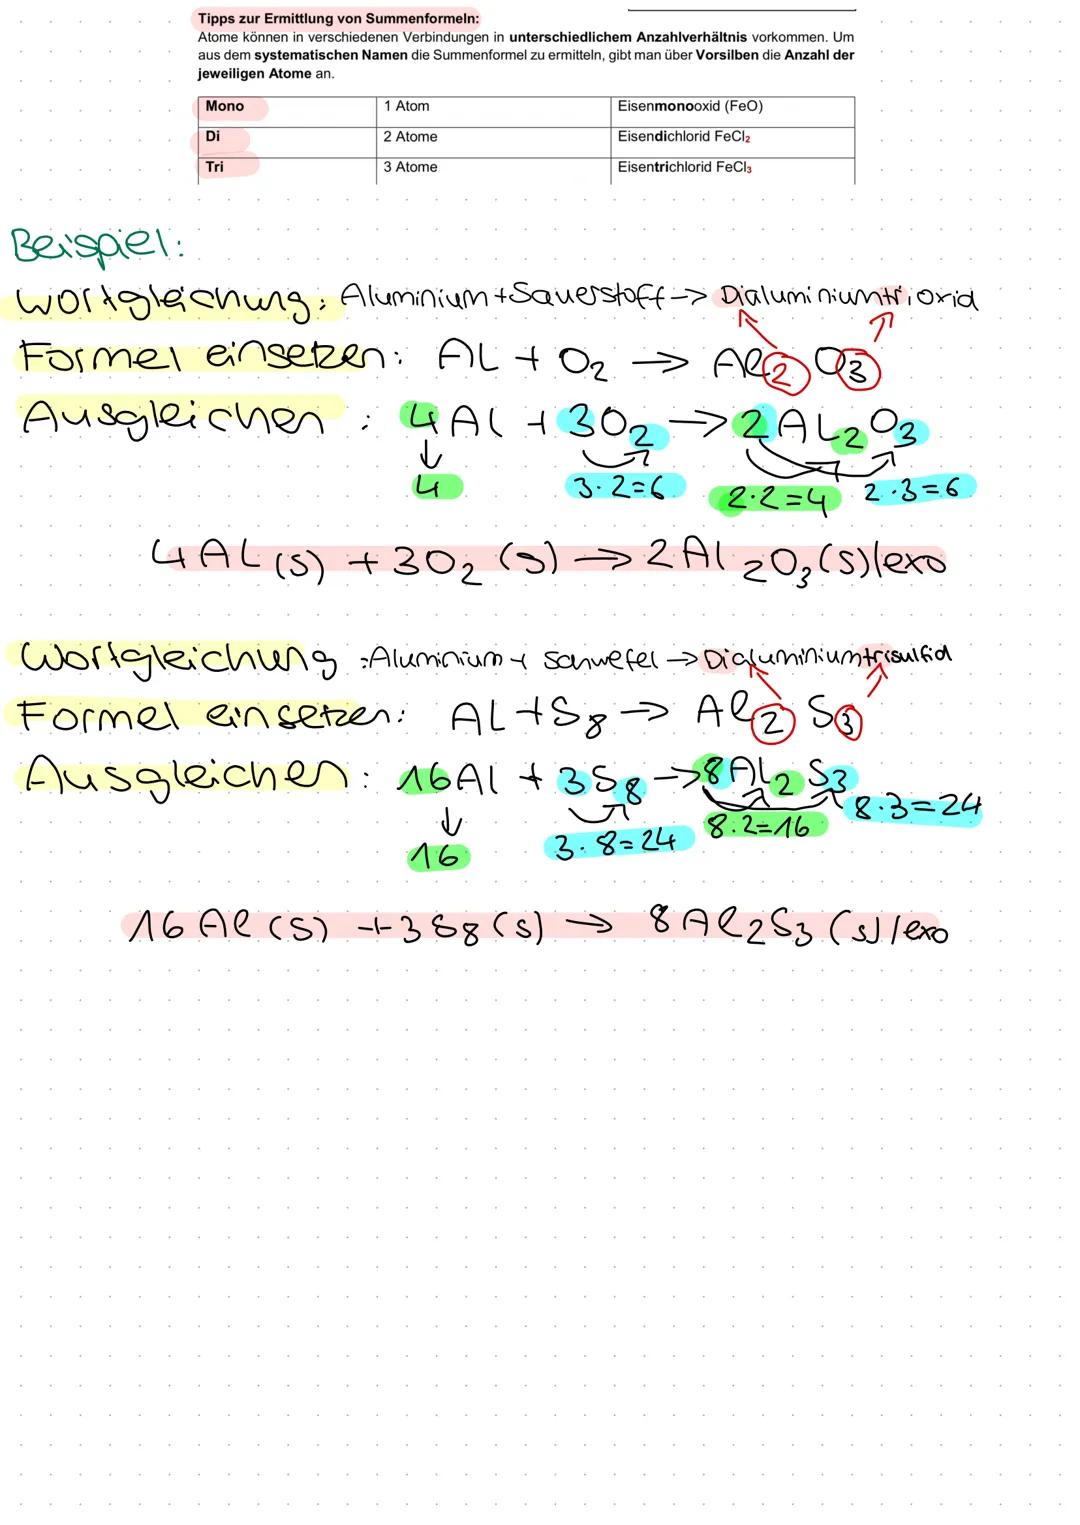 Tipps zur Ermittlung von Summenformeln:
Atome können in verschiedenen Verbindungen in unterschiedlichem Anzahlverhältnis vorkommen. Um
aus dem systematischen Namen die Summenformel zu ermitteln, gibt man über Vorsilben die Anzahl der
jeweiligen Atome an.
Mono 1 Atom Eisenmonooxid (FeO)
Di 2 Atome Eisendichlorid FeCl₂
Tri 3 Atome Eisentrichlorid FeCl₃
Beispiel:
Wortgleichung: Aluminium + Sauerstoff → Dialuminiumtrioxid
Formel einsetzen: AL + O₂ → Al₂O₃
Ausgleichen: 4Al + 3O₂ → 2AL₂O₃
4 3·2=6 2·2=4 2·3=6
4AL(s) + 3O₂(s) → 2Al₂O₃(s)/exo
Wortgleichung: Aluminium + Schwefel → Dialuminiumtrisulfid
Formel einsetzen: AL + S₈ → Al₂S₃
Ausgleichen: 16Al + 3S₈ → 8AL₂S₃
16 3·8=24 8·2=16 8·3=24
16Al(s) + 3S₈(s) → 8Al₂S₃(s)/exo